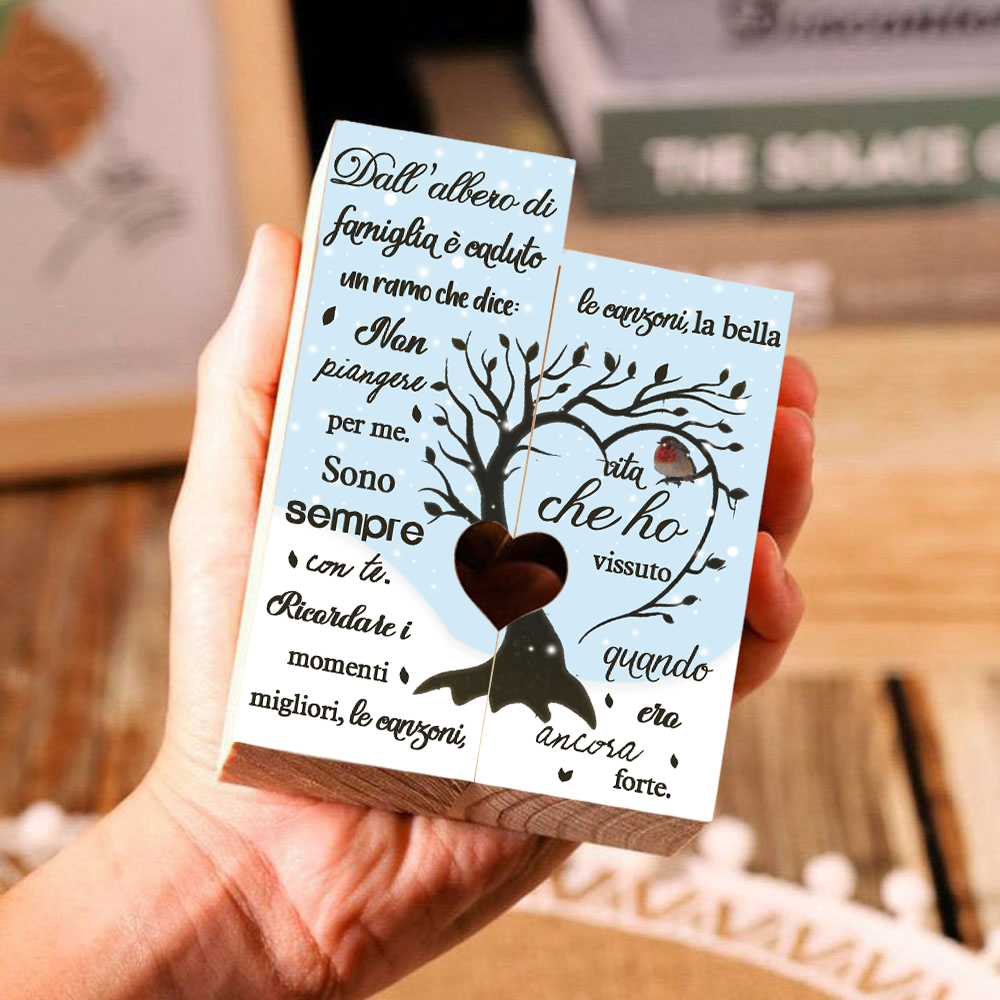 Dall'albero di
famiglia è caduto
un ramo che dice:
Non
piangere
per me.
Sono
sempre
con te.
Ricordare i
momenti
migliori, le canzoni,
le canzoni, la bella
vita
che ho
vissuto
quando
era
ancora
forte.
THE SOLACE